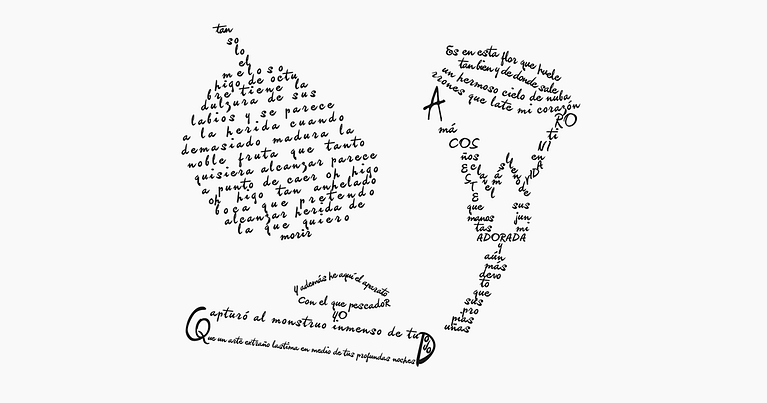 tan
so
lo
el
meloso
higo de octu
bre tiene la
dulzura de sus
labios y se parece
a la herida cuando
demasiado madura la
noble fruta que tanto
quisiera alcanzar parece
a punto de caer oh higo
oh higo tan anhelado
boca que pretendo
alcanzar herida de
la que quiero
morir
Es en esta flor que huele
tan bien y de donde sale
un hermoso cielo de nuba
rrones que late mi corazón
A
má
COS
ños
que
manos
tas
RO
ti
NI
en
de
sus
jun
mi
ADORADA
y
aún
más
devo
to
que
sus
pro
pias
uñas
y además he aquí el aparato
Con el que pescadoR
yO
Qapturó al monstruo inmenso de tu
OJO
Que un arte extraño lastima en medio de tus profundas noches